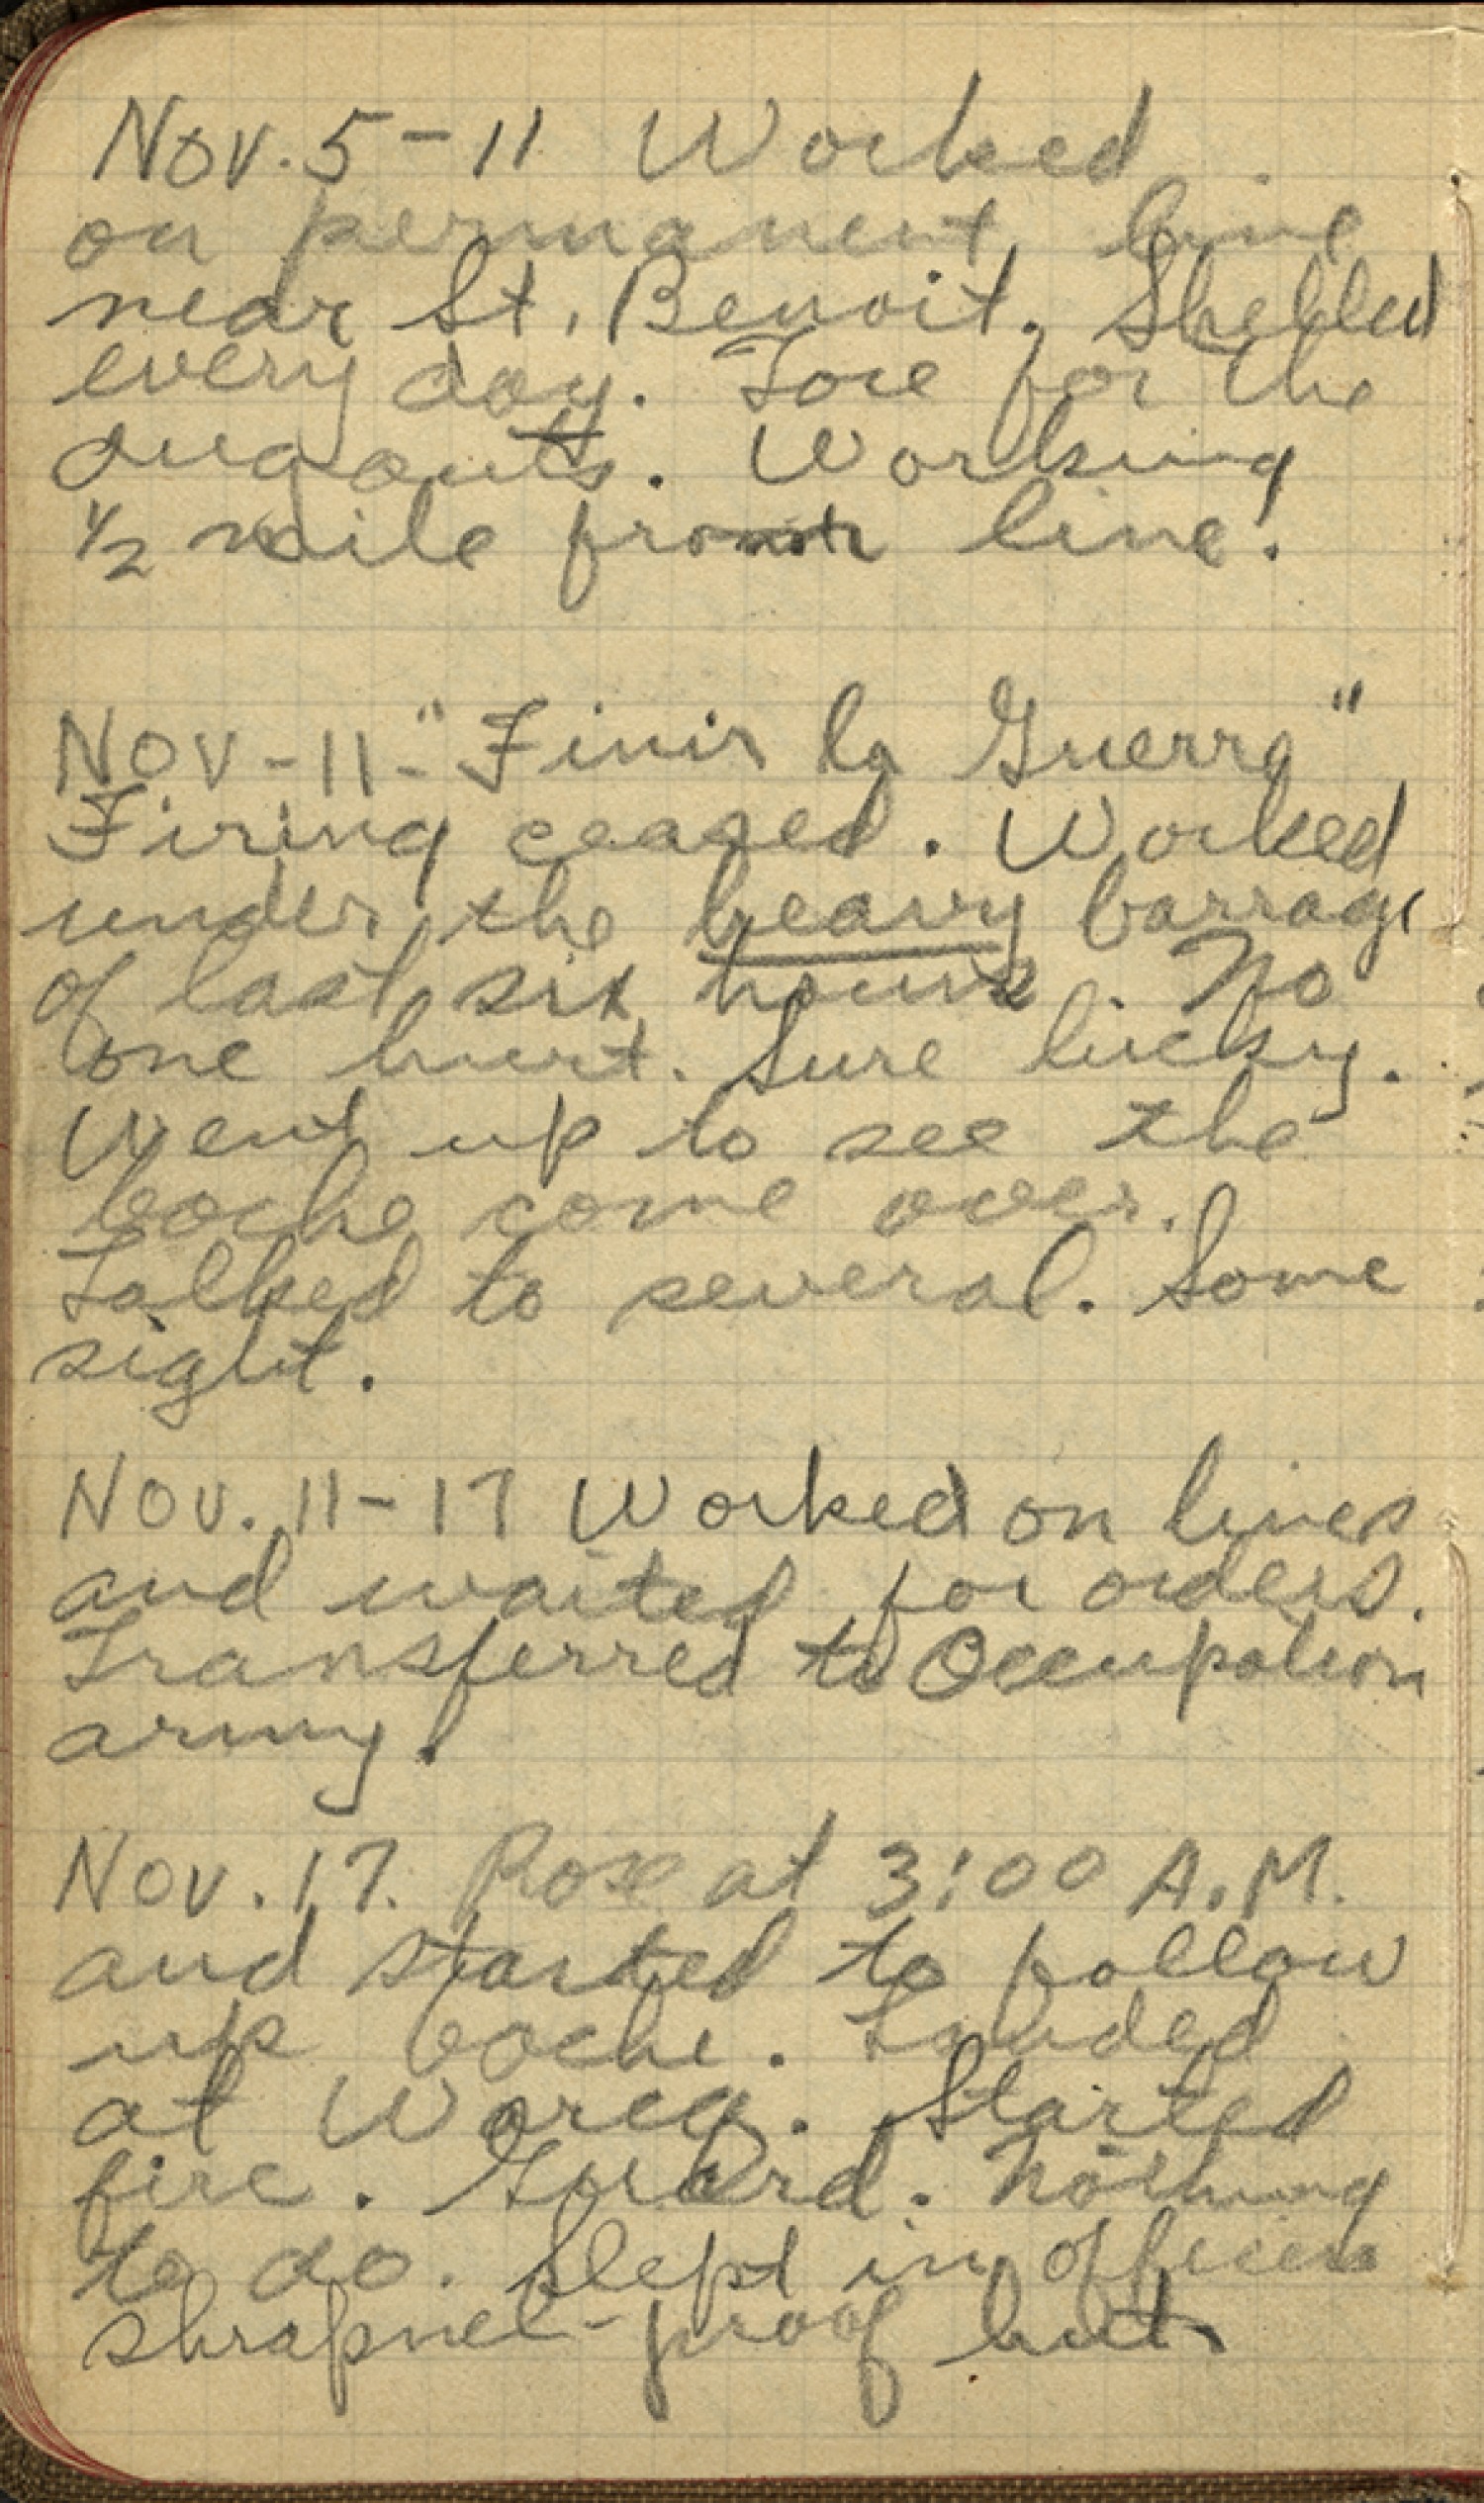 Nov. 5-11 Worked
on permanent line
near St. Benoit. Shelled
every day. Tore for the
dugouts. Working
1/2 mile from line!
Nov-11-"Finis la Guerra"
Firing ceased. Worked
under the heavy barrage
of last six hours. No
one hurt. Sure lucky.
Went up to see the
boche come over.
Talked to several. Some
sight.
Nov. 11-17 Worked on lines
and waited for orders.
Transferred to Occupation
army.
Nov. 17. Rose at 3:00 A.M.
and started to follow
up boche. Landed
at Started
fire. Guard. Nothing
to do. Slept in officers
shrapnel-proof hut